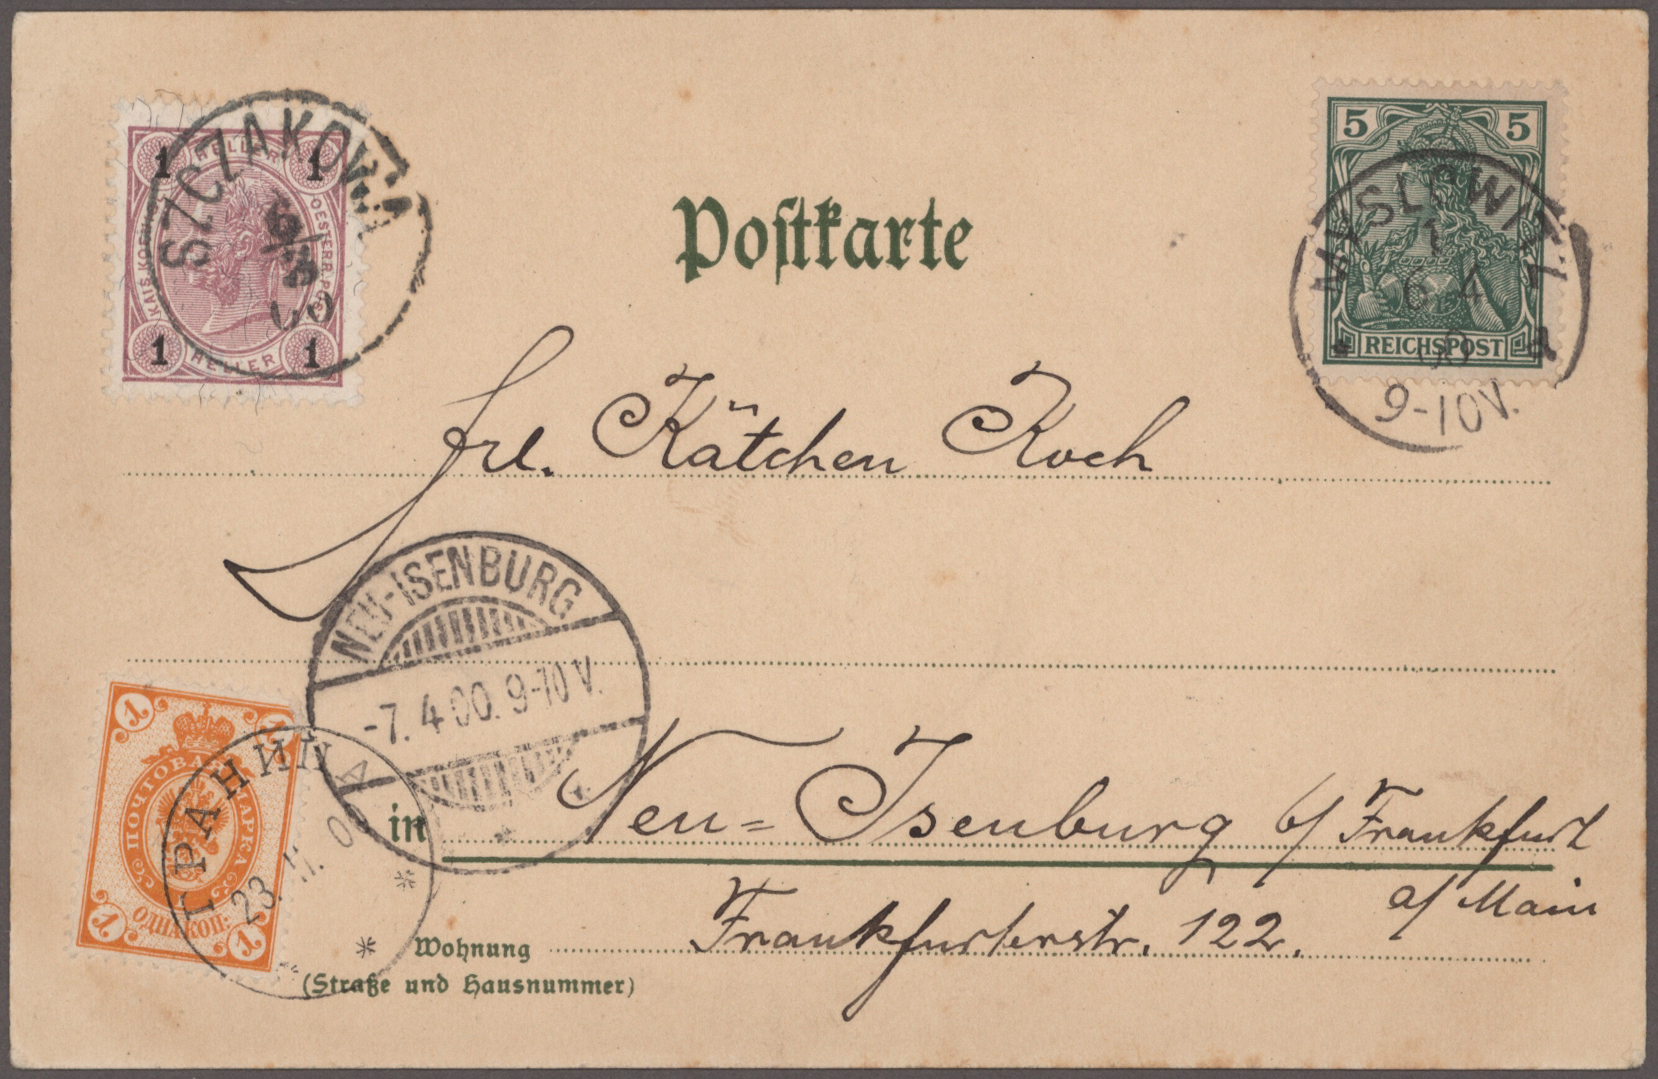 1 HELLER 1
KAIS. KOEN. OESTERR. POST
1 HELLER 1
SZCZAKOWA
00
Postkarte
5 5
REICHSPOST
MYSLOWITZ
1
6 4
00
9-10V.
Frl. Kätchen Koch
NEU-ISENBURG
-7. 4 00. 9-10 V.
1 1
ПОЧТОВАЯ МАРКА
ОДНА КОП:
1 1
ГРАНИЦА
23.
in Neu-Isenburg b/ Frankfurt
a/ Main
Wohnung Frankfurterstr. 122.
(Straße und Hausnummer)